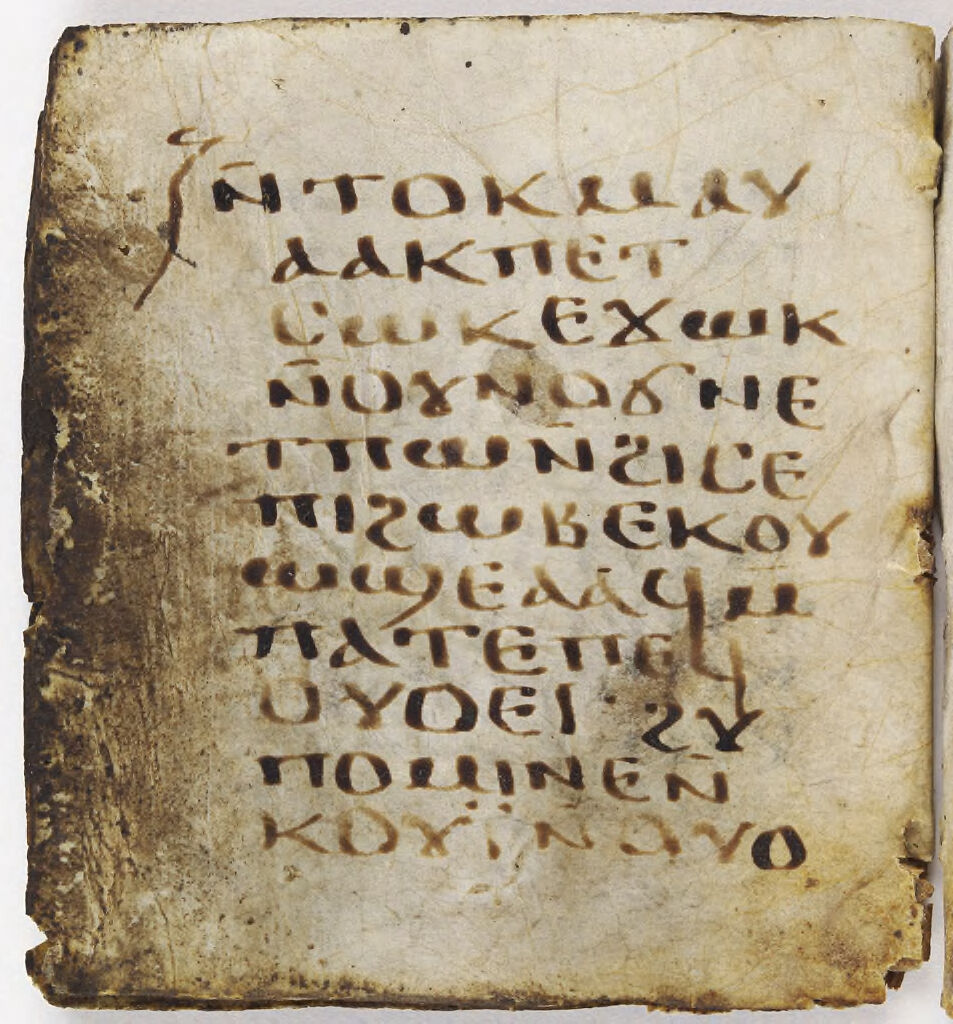 ⲛ̄ⲧⲟⲕⲙⲁⲩ
ⲁⲁⲕⲡⲉⲧ
ⲥⲱⲕⲉϫⲱⲕ
ⲛ̄ⲟⲩⲛⲟϭⲛⲉ
ⲧⲡⲱⲛ̄ϩⲓⲥⲉ
ⲡⲓϩⲱⲃⲉⲕⲟⲩ
ⲱϣⲉⲁⲁϥⲙ̄
ⲡⲁⲧⲉⲡⲉϥ
ⲟⲩⲟⲉⲓ· ϩⲩ
ⲡⲟⲙⲓⲛⲉⲛ̄
ⲕⲟⲩⲓ̈ⲛ̄ⲟⲩⲟ